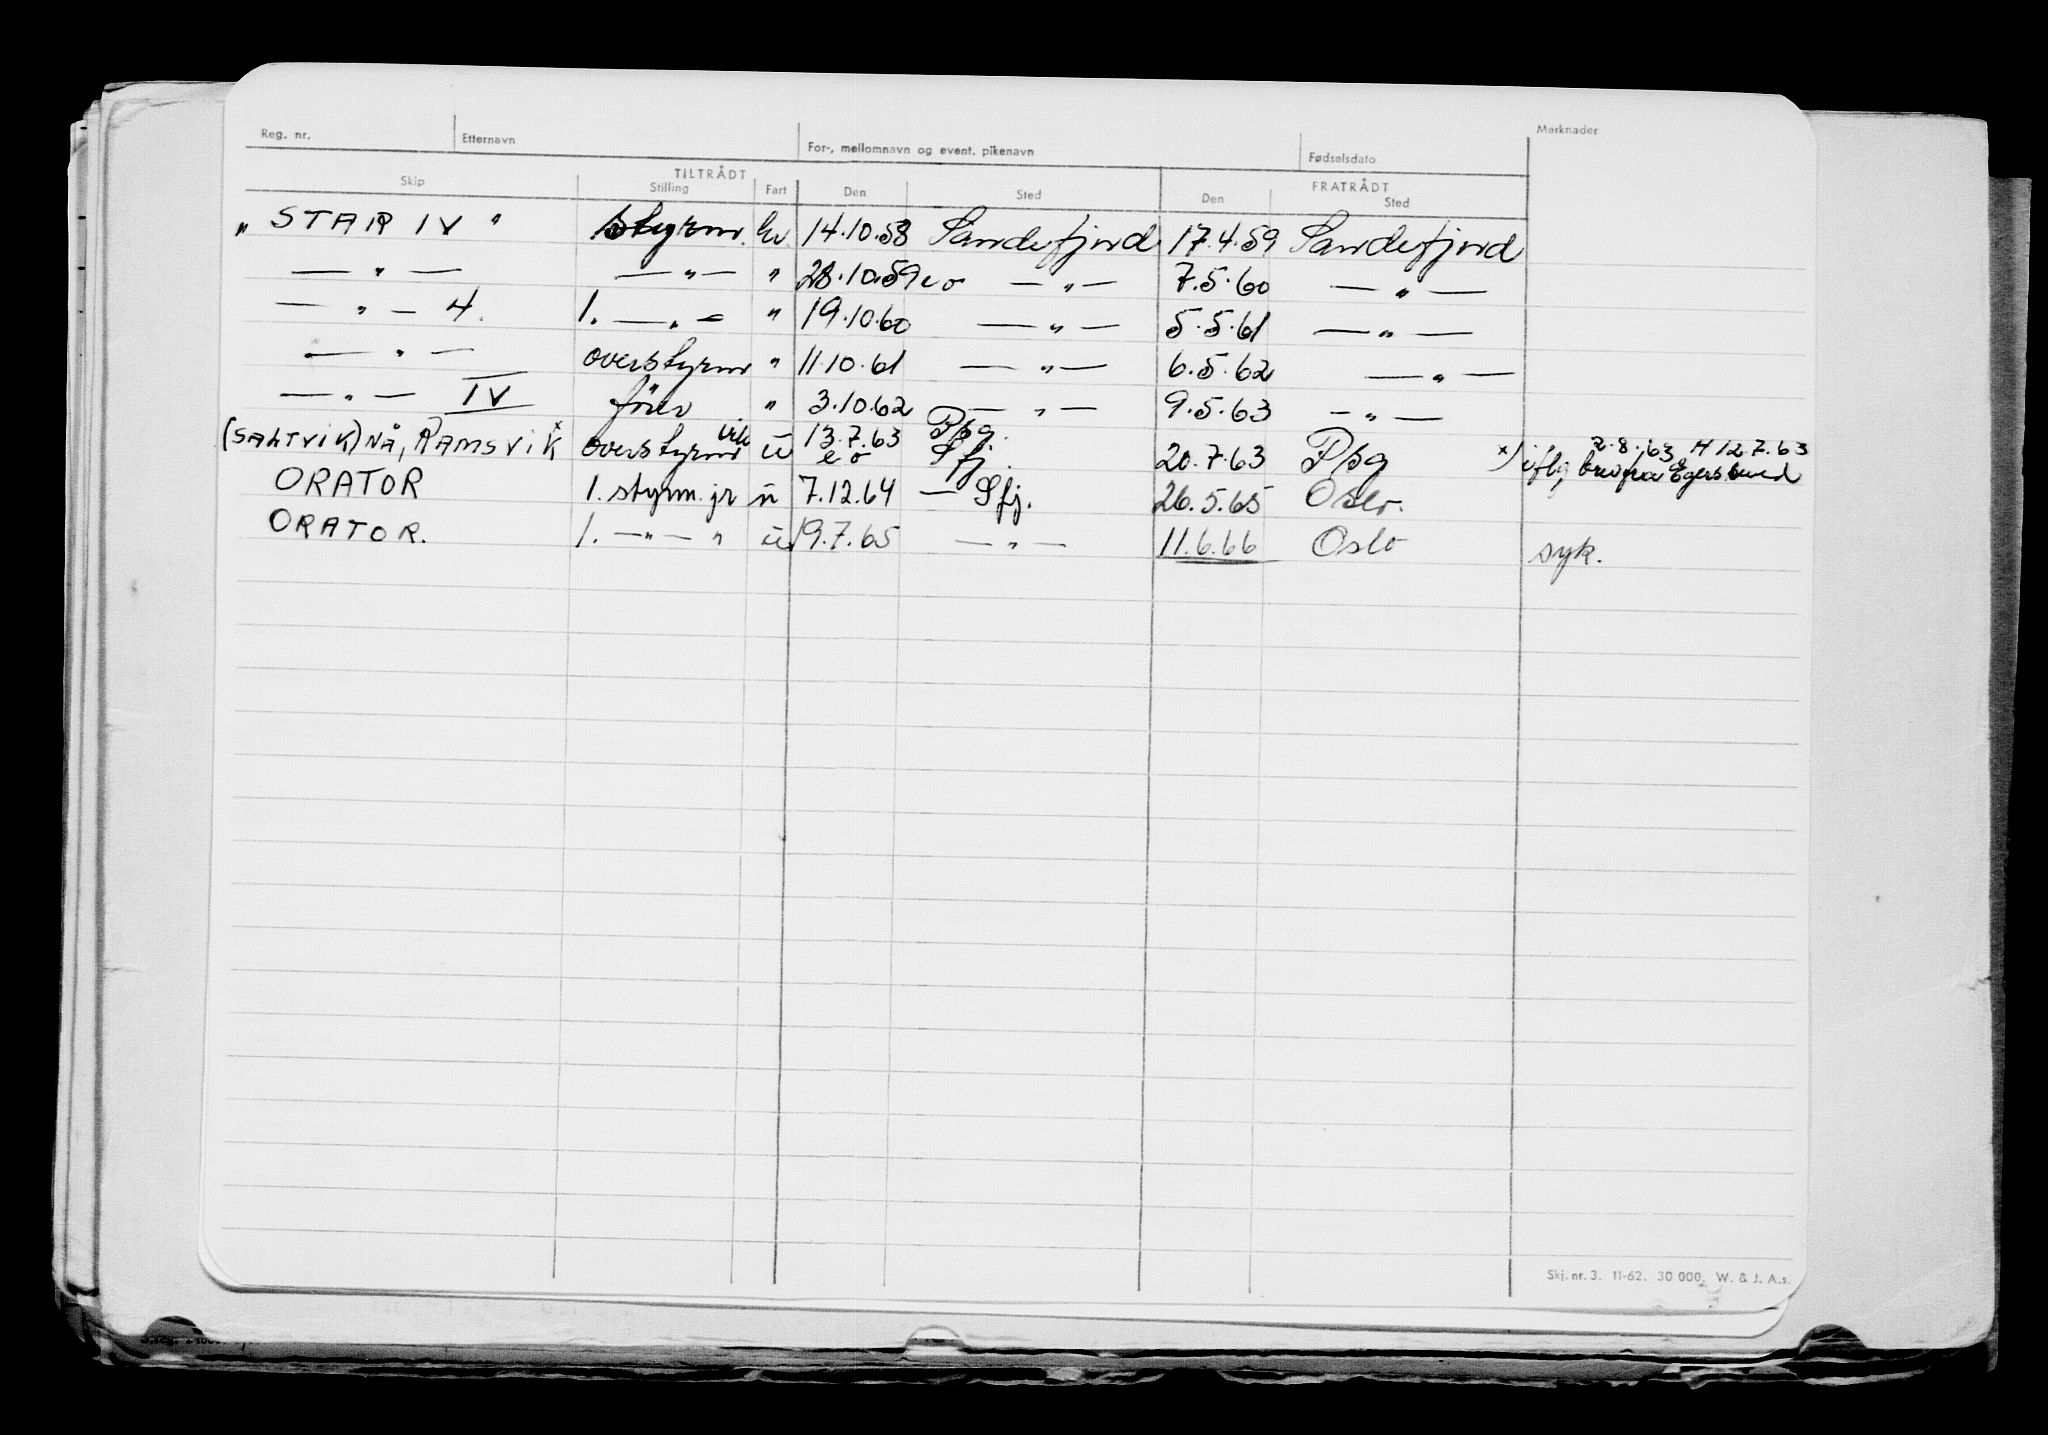 Reg. nr. Etternavn For-, mellomnavn og event. pikenavn Fødselsdato Merknader
TILTRÅDT FRATRÅDT
Skip Stilling Fart Den Sted Den Sted
" STAR IV " styrm. hv 14.10.58 Sandefjord 17.4.59 Sandefjord
— " — — " — " 28.10.59 eo — " — 7.5.60 — " —
— " — 4. 1. — " — " 19.10.60 — " — 5.5.61 — " —
— " — overstyrm " 11.10.61 — " — 6.5.62 — " —
— " — IV fører " 3.10.62 — " — 9.5.63 — " —
(SALTVIK) NÅ, RAMSVIK x overstyrm vik u 13.7.63 Psg. 20.7.63 Psg x) iflg brev fra Egersund 2.8.63
eo Sfj.
ORATOR 1. styrm. jr u 7.12.64 — Sfj. 26.5.65 Oslo.
ORATOR. 1. — " — " u 19.7.65 — " — 11.6.66 Oslo syk.
Skj. nr. 3. 11-62. 30 000. W. & J. A.s.